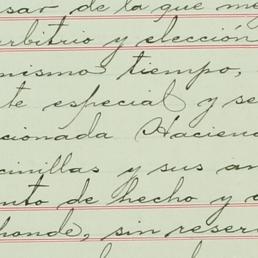 sar de la que me
arbitrio y elección
mismo tiempo,
te especial y se
cionada Hacien
cinillas y sus an
nto de hecho y
honde, sin reser